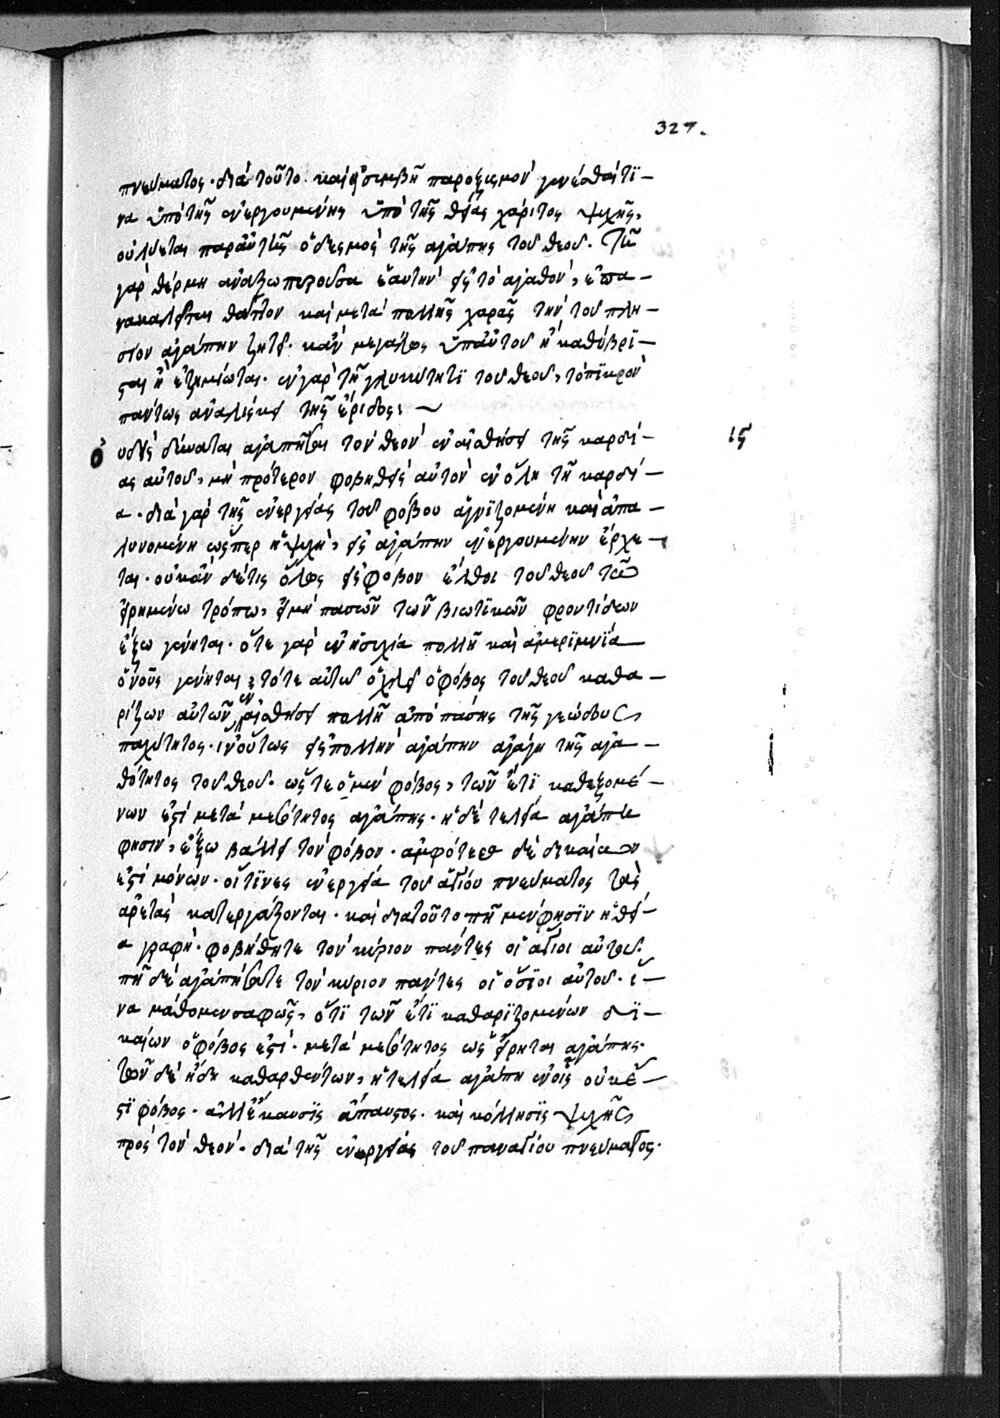 327.
πνεύματος· διὰ τοῦτο καὶ εἰ συμβῆ παροξυσμὸν γενέσθαι τϊ-
να ὑπὸ τῆς ἐνεργουμένης ὑπὸ τῆς θείας χάριτος ψυχῆς,
οὐ λύεται παρ' αὐτῆς ὁ δεσμὸς τῆς ἀγάπης τοῦ θεοῦ. τῆ
γὰρ θέρμη ἀναζωπυροῦσα ἑαυτὴν εἰς τὸ ἀγαθὸν, ἐπα-
νακαλεῖται θᾶττον καὶ μετὰ πολλῆς χαρᾶς τὴν τοῦ πλη-
σίον ἀγάπην ζητεῖ· κἂν μεγάλως ὑπ' αὐτοῦ ἢ καθύβρϊ-
σται ἢ ἐζημίωται. ἐν γὰρ τῆ γλυκύτητϊ τοῦ θεοῦ, τὸ πϊκρὸν
πάντως ἀναλίσκει τῆς ἔριδος: ~
Οὐδεὶς δύναται ἀγαπῆσαι τὸν θεὸν ἐν αἰσθήσει τῆς καρδί- ιϛ
ας αὐτοῦ, μὴ πρότερον φοβηθεὶς αὐτὸν ἐν ὅλη τῆ καρδί-
α· διὰ γὰρ τῆς ἐνεργείας τοῦ φόβου ἁγνϊζομένη καὶ ἁπα-
λυνομένη ὥσπερ ἡ ψυχὴ, εἰς ἀγάπην ἐνεργουμένην ἔρχε-
ται· οὐκ ἂν δέ τις ὅλως εἰς φόβον ἔλθοι τοῦ θεοῦ τῶ
εἰρημένω τρόπω, εἰ μὴ πασῶν τῶν βιωτϊκῶν φροντίδων
ἔξω γένηται. ὅτε γὰρ ἐν ἡσυχία πολλῆ καὶ ἀμερϊμνϊα
ὁ νοῦς γένηται, τότε αὐτὸν ὀχλεῖ ὁ φόβος τοῦ θεοῦ καθα-
ρίζων αὐτὸν ἐν αἰσθήσει πολλῆ ἀπὸ πάσης τῆς γεώδους
παχύτητος· ἵν' οὕτως εἰς πολλὴν ἀγάπην ἀγάγη τῆς ἀγα-
θότητος τοῦ θεοῦ. ὥστε ὁ μὲν φόβος, τῶν ἔτϊ καθεζομέ-
νων ἐστὶ μετὰ μεσότητος ἀγάπης. ἡ δὲ τελεία ἀγάπη
φησιν, ἔξω βάλλει τὸν φόβον. ἀμφότερα δὲ δικαίων
ἐστὶ μόνων· οἵτϊνες ἐνεργεία τοῦ ἁγίου πνεύματος τὰς
ἀρετὰς κατεργάζονται. καὶ διὰ τοῦτο πῆ μὲν φησὶν ἡ θεί-
α γραφὴ· φοβήθητε τὸν κύριον πάντες οἱ ἅγιοι αὐτοῦ.
πῆ δὲ ἀγαπήσατε τὸν κύριον πάντες οἱ ὅσϊοι αὐτοῦ. ἵ-
να μάθομεν σαφῶς, ὅτϊ τῶν ἔτϊ καθαρϊζομένων δϊ-
καίων ὁ φόβος ἐστὶ· μετὰ μεσότητος ὡς εἴρηται ἀγάπης.
τῶν δὲ ἤδη καθαρθέντων, ἡ τελεία ἀγάπη ἐν οἷς οὐκ ἔ-
στϊ φόβος. ἀλλ' ἔκαυσϊς ἄπαυστος. καὶ κόλλησϊς ψυχῆς
πρὸς τὸν θεὸν. διὰ τῆς ἐνεργείας τοῦ παναγίου πνεύματος.